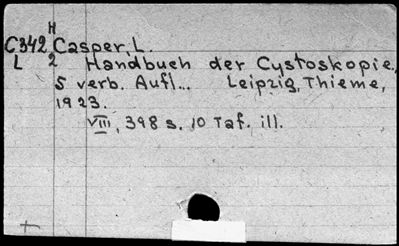 H
C342 Casper, L.
L 2 Handbuch der Cystoskopie.,
5 verb. Aufl... Leipzig, Thieme,
1923.
VIII, 398 s. 10 Taf. ill.